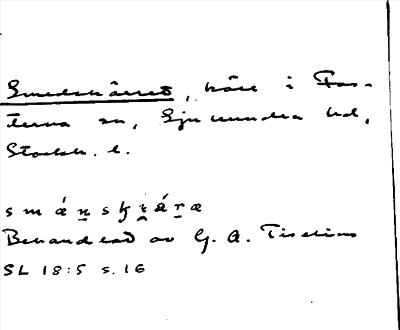 Smedskärret, kärr i Fas-
terna sn, Sjuhundra hd,
Stockh. l.
s m á n s k ä́ r æ
Behandlad av G. A. Tiselius
SL 18:5 s. 16